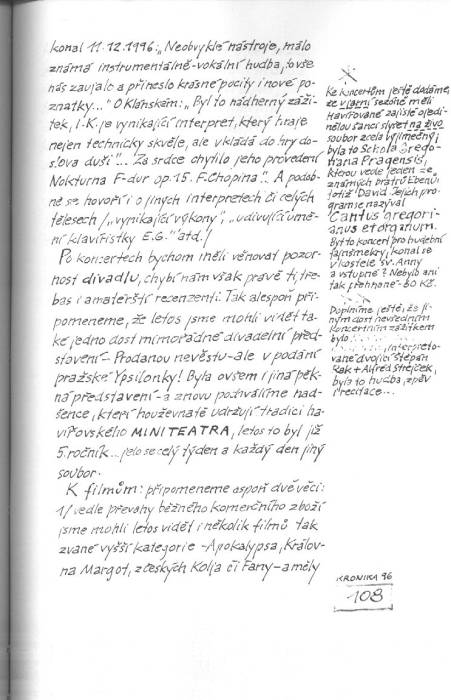 konal 11.12.1996: „Neobvyklé nástroje, málo
známá instrumentálně-vokální hudba, to vše
nás zaujalo a přineslo krásné pocity i nové po-
znatky..." O Klánském: „Byl to nádherný záži-
tek, I.K. je vynikající interpret, který hraje
nejen technicky skvěle, ale vkládá do hry do-
slova duši"... „Za srdce chytilo jeho provedení
Nokturna F-dur op.15. F. Chopina". A podob-
ně se hovoří o jiných interpretech či celých
tělesech /„vynikající výkony", „udivující umě-
ní klavíristky E.G." atd./
Po koncertech bychom měli věnovat pozor-
nost divadlu, chybí nám však právě ti, tře-
bas i amatérští recenzenti. Tak alespoň při-
pomeneme, že letos jsme mohli vidět ta-
ké jedno dost mimořádné divadelní před-
stavení - Prodanou nevěstu - ale v podání
pražské Ypsilonky! Byla ovšem i jiná pěk-
ná představení - a znovu podtrháváme nad-
šence, kteří houževnatě udržují tradici ha-
vířovského MINITEATRA, letos to byl již
5. ročník... jelo se celý týden a každý den jiný
soubor.
K filmům: připomeneme aspoň dvě věci:
1/ vedle převahy běžného komerčního zboží
jsme mohli letos vidět i několik filmů tak
zvané vyšší kategorie - Apokalypsa, Královna
Margot, z českých Kolja či Fany - a měly
Ke koncertům ještě dodáme,
že v jarní sezóně měli
Havířované zajisté ojedi-
nělou šanci slyšet na živo
soubor zcela výjimečný,
byla to Schola Grego-
riana Pragensis,
kterou vede jeden ze
známých bratrů Ebenů,
totiž David. Jejich pro-
gram se nazýval
Cantus gregori-
anus et organum.
Byl to koncert pro hudební
fajnšmekry, konal se
v kostele sv. Anny
a vstupné? Nebylo ani
tak přehnané - 80 Kč.
Doplníme ještě, že ji-
ným dost nevšedním
koncertním zážitkem
bylo
interpreto-
vané dvojicí Štěpán
Rak + Alfréd Strejček,
byla to hudba, zpěv
i recitace...
KRONIKA 96
108